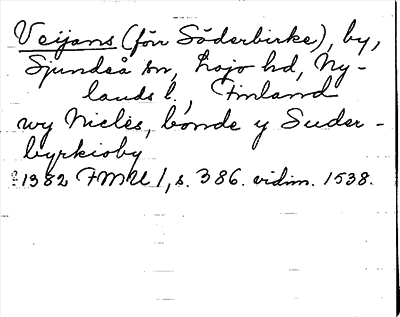 Veijans (för Söderbirke), by,
Sjundeå sn, Lojo hd, Ny-
lands l., Finland
wy Niclès, bonde y Suder-
byrkioby
1382 FMU I, s. 386. vidim. 1538.